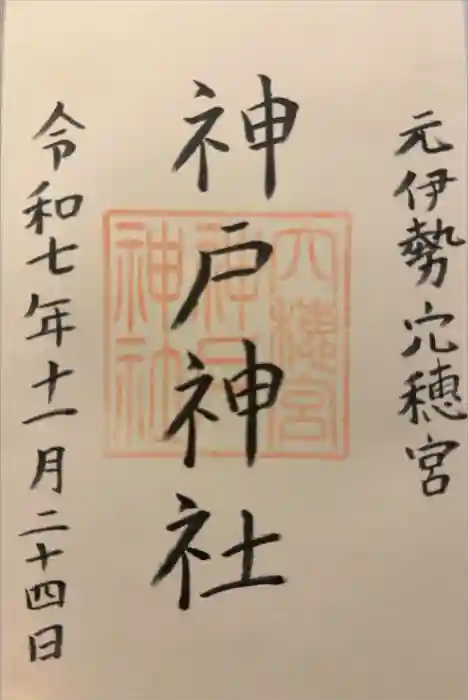 元伊勢穴穂宮
神戸神社
穴穂宮神戸神社
令和七年十一月二十四日